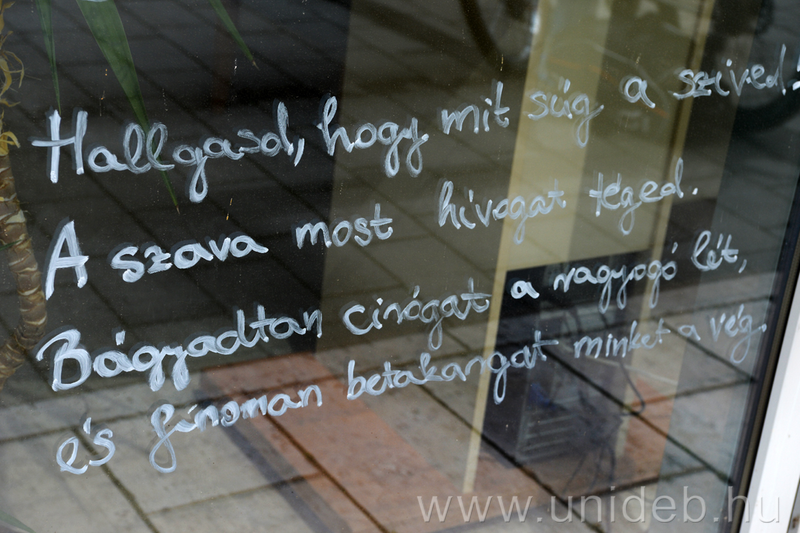 Hallgasd, hogy mit súg a szíved!
A szava most hívogat téged.
Bágyadtan cirógat a ragyogó lét,
és finoman betakargat minket a vég.
www.unideb.hu